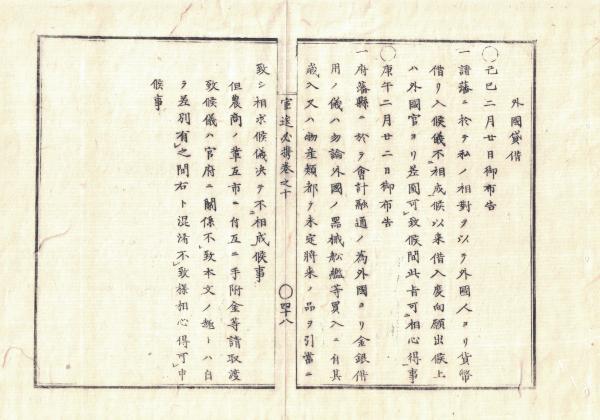 外國貸借
◯己巳二月廿日御布告
一諸藩ニ於テ私ノ相對ヲ以テ外國人ヨリ貨幣
借リ入候儀不相成候以来借入度向願出候上
ハ外國官ヨリ差圖可致候間此旨可相心得事
◯庚午二月廿二日御布告
一府藩縣ニ於テ會計融通ノ為外國ヨリ金銀借
用ノ儀ハ勿論外國ノ器械舩艦等買入ニ付其
歳入又ハ物産類都テ未定将来ノ品ヲ引當ニ
官途必携巻之十
◯四十八
致シ相求候儀決テ不相成候事
但農商ノ輩互市ニ付互ニ手附金等請取渡
致候儀ハ官府ニ關係不致本文ノ趣トハ自
ラ差別有之間右ト混淆不致様相心得可申
候事